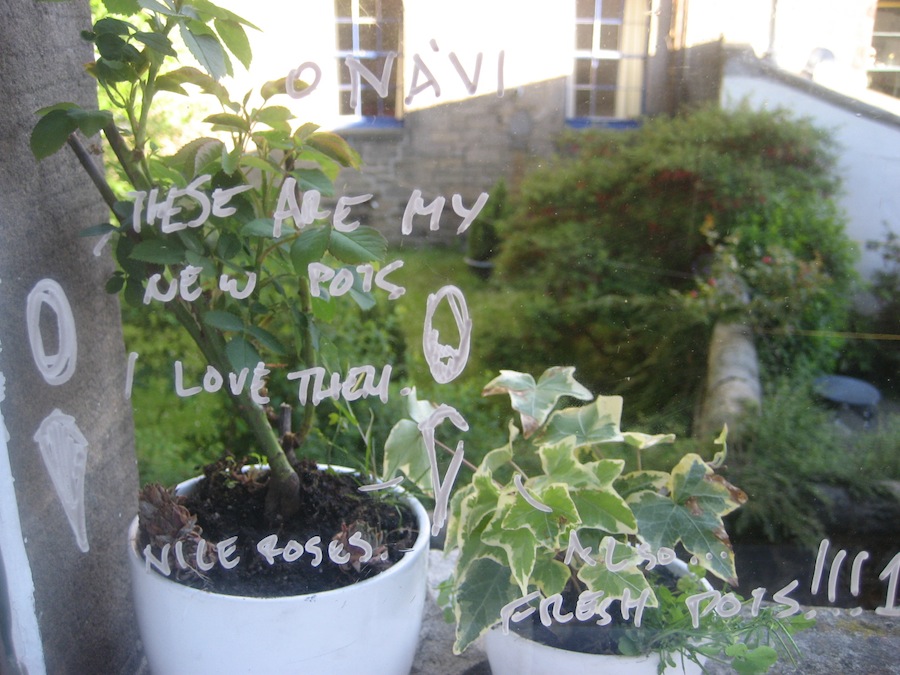 O NÀVI
THESE ARE MY
NEW POTS
I LOVE THEM.
NICE ROSES.
ALSO...
FRESH POTS.!!!1